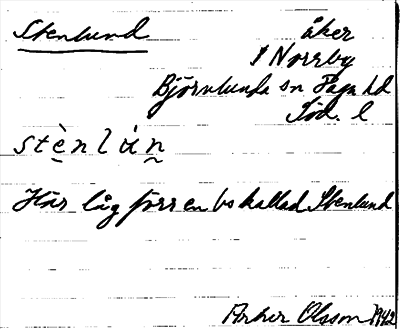 Stenlund
åker
i Norrby
Björnlunda sn Daga hd
Söd. l
stè̱nlán̰
Här låg förr en bs kallad Stenlund
Olsson 1942